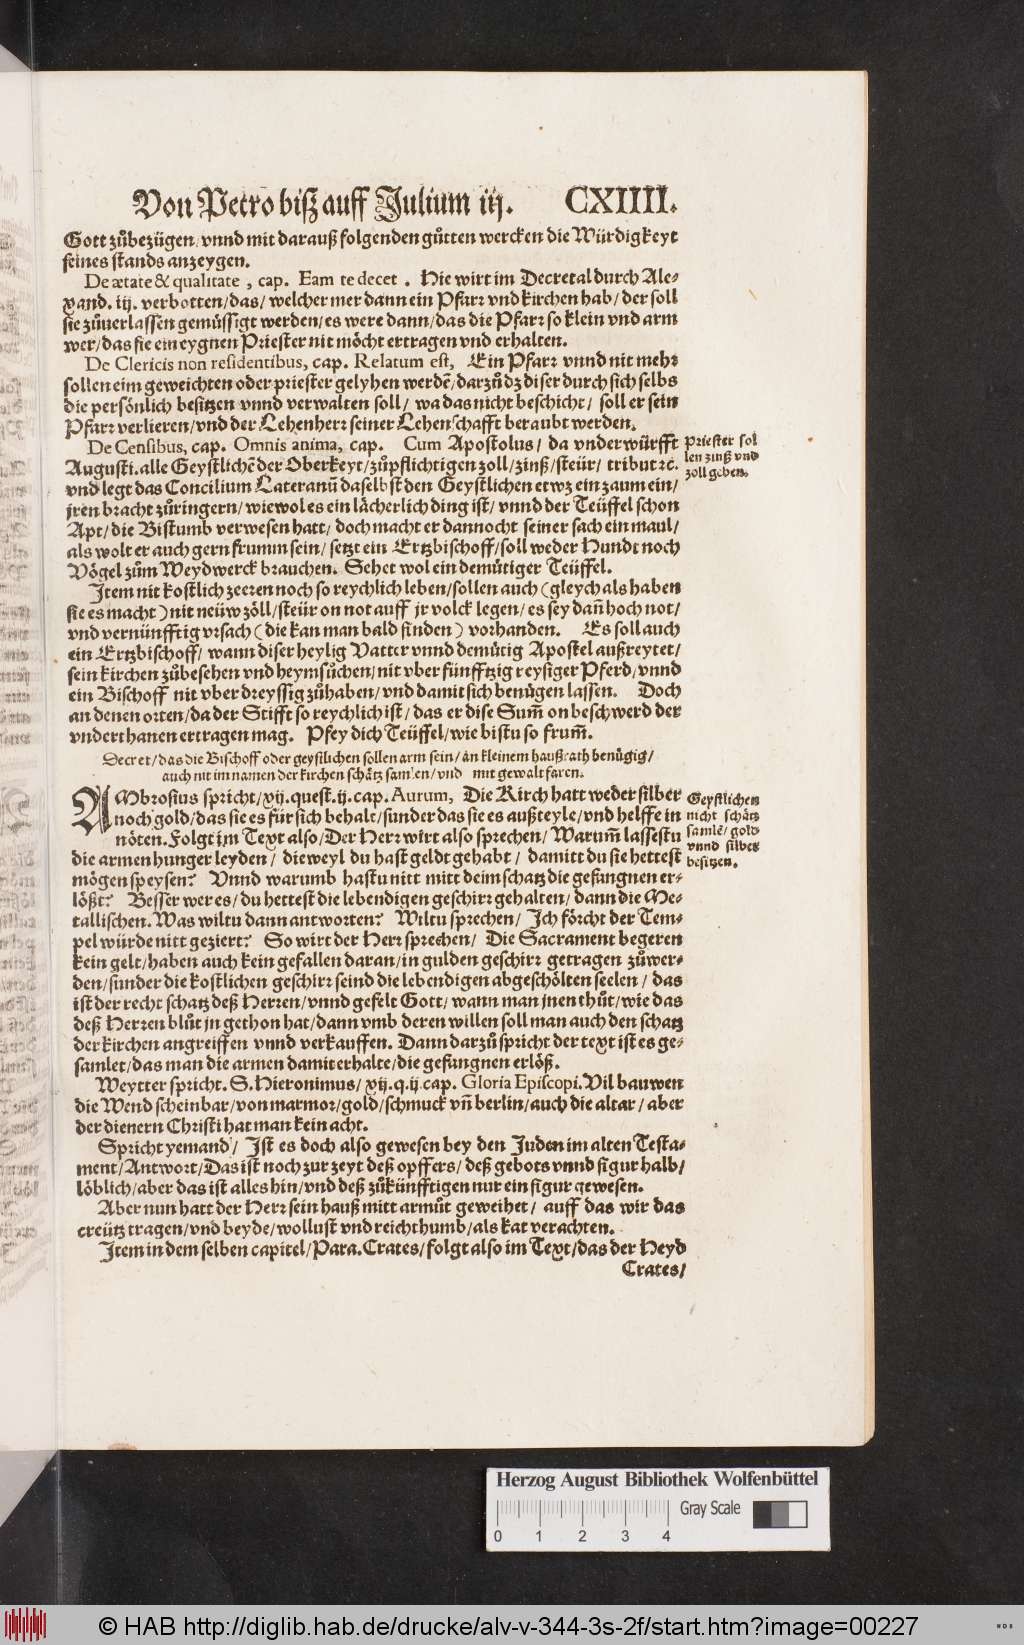 Von Petro biß auff Julium iij. CXIIII.
Gott zůbezügen/vnnd mit darauß folgenden gůtten wercken die Würdigkeyt
seines stands anzeygen.
De ætate & qualitate, cap. Eam te decet. Hie wirt im Decretal durch Ale-
xand. iij. verbotten/das/welcher mer dann ein Pfarr vnd kirchen hab/der soll
sie zůuerlassen gemüssigt werden/es were dann/das die Pfarr so klein vnd arm
wer/das sie ein eygnen Priester nit möcht ertragen vnd erhalten.
De Clericis non residentibus, cap. Relatum est, Ein Pfarr vnnd nit mehr
sollen eim geweichten oder priester gelyhen werdē/darzů dz diser durch sich selbs
die persönlich besitzen vnnd verwalten soll/ wa das nicht beschicht/ soll er sein
Pfarr verlieren/vnd der Lehenherr seiner Lehenschafft beraubt werden.
De Censibus, cap. Omnis anima, cap. Cum Apostolus/ da vnderwürfft
Augusti.alle Geystlichē der Oberkeyt/zůpflichtigen zoll/zinß/steür/ tribut ꝛc.
vnd legt das Concilium Lateranū daselbst den Geystlichen etwz ein zaum ein/
jren bracht zůringern/wiewol es ein lächerlich ding ist/ vnnd der Teüffel schon
Apt/die Bistumb verwesen hatt/ doch macht er dannocht seiner sach ein maul/
als wolt er auch gern frumm sein/ setzt ein Ertzbischoff/soll weder Hundt noch
Vögel zům Weydwerck brauchen. Sehet wol ein demütiger Teüffel.
Item nit kostlich zeeren noch so reychlich leben/sollen auch (gleych als haben
sie es macht) nit neüw zöll/steür on not auff jr volck legen/ es sey dañ hoch not/
vnd vernünfftig vrsach (die kan man bald finden) vorhanden. Es soll auch
ein Ertzbischoff/ wann diser heylig Vatter vnnd demütig Apostel außreytet/
sein kirchen zůbesehen vnd heymsůchen/nit vber fünfftzig reysiger Pferd/vnnd
ein Bischoff nit vber dreyssig zůhaben/vnd damit sich benügen lassen. Doch
an denen orten/da der Stifft so reychlich ist/ das er dise Sum̄ on beschwerd der
vnderthanen ertragen mag. Pfey dich Teüffel/wie bistu so frum̄.
Priester sol
len zinß vnd
zoll geben.
Decret/das die Bischoff oder geystlichen sollen arm sein/an kleinem haußrath benügig/
auch nit im namen der kirchen schätz samlen/vnd mit gewalt faren.
AMbrosius spricht/xij.quest.ij.cap.Aurum, Die Kirch hatt weder silber
noch gold/das sie es für sich behalt/sunder das sie es außteyle/vnd helffe in
nöten.Folgt im Text also/Der Herr wirt also sprechen/ Warum̄ lassestu
die armen hunger leyden/ dieweyl du hast geldt gehabt/ damitt du sie hettest
mögen speysen? Vnnd warumb hastu nitt mitt deim schatz die gefangnen er-
lößt? Besser wer es/du hettest die lebendigen geschirr gehalten/dann die Me-
tallischen.Was wiltu dann antworten? Wiltu sprechen/ Ich förcht der Tem-
pel würde nitt geziert? So wirt der Herr sprechen/ Die Sacrament begeren
kein gelt/haben auch kein gefallen daran/in gulden geschirr getragen zůwer-
den/sunder die kostlichen geschirr seind die lebendigen abgeschölten seelen/ das
ist der recht schatz deß Herren/vnnd gefelt Gott/wann man jnen thůt/wie das
deß Herren blůt jn gethon hat/dann vmb deren willen soll man auch den schatz
der kirchen angreiffen vnnd verkauffen. Dann darzů spricht der text ist es ge-
samlet/das man die armen damit erhalte/die gefangnen erlöß.
Geystlichen
nicht schätz
samlē/ gold
vnnd silber
besitzen.
Weytter spricht.S.Hieronimus/xij.q.ij.cap. Gloria Episcopi.Vil bauwen
die Wend scheinbar/von marmor/gold/schmuck vñ berlin/auch die altar/aber
der dienern Christi hat man kein acht.
Spricht yemand/ Ist es doch also gewesen bey den Juden im alten Testa-
ment/Antwort/Das ist noch zur zeyt deß opffers/deß gebots vnnd figur halb/
löblich/aber das ist alles hin/vnd deß zůkünfftigen nur ein figur gewesen.
Aber nun hatt der Herr sein hauß mitt armůt geweihet/ auff das wir das
creütz tragen/vnd beyde/wollust vnd reichthumb/als kat verachten.
Item in dem selben capitel/Para.Crates/folgt also im Text/das der Heyd
Crates/
Herzog August Bibliothek Wolfenbüttel
Gray Scale
0 1 2 3 4
© HAB http://diglib.hab.de/drucke/alv-v-344-3s-2f/start.htm?image=00227